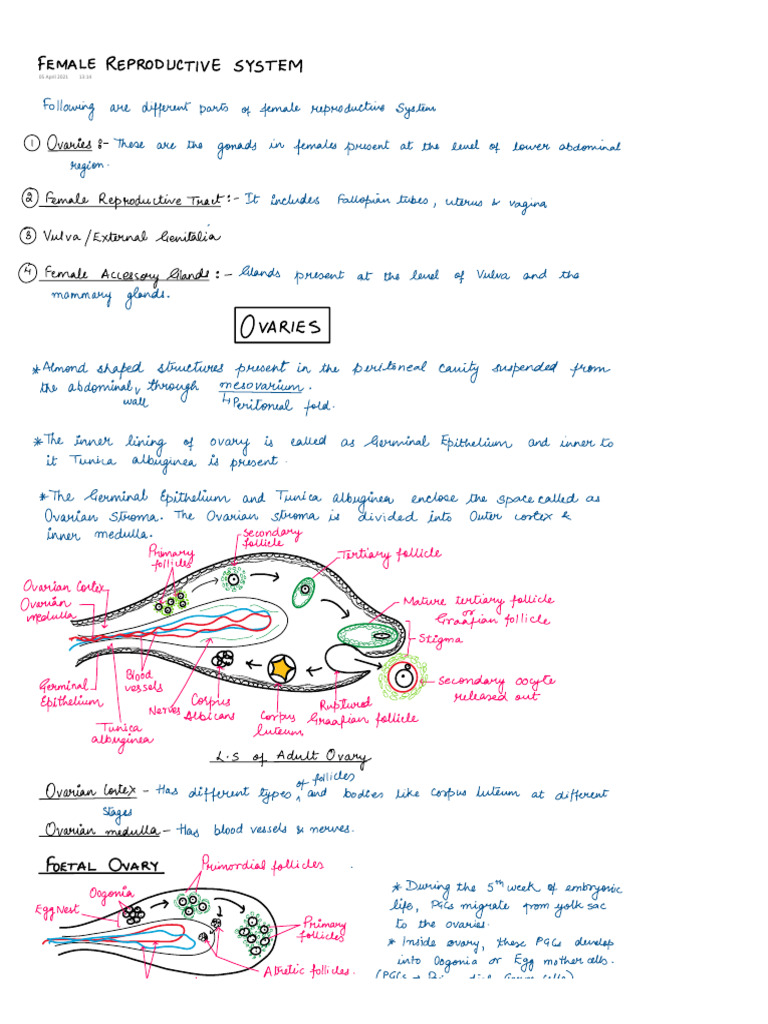 FEMALE REPRODUCTIVE SYSTEM
05 April 2021 12:14
Following are different parts of female reproductive System
① Ovaries :- These are the gonads in females present at the level of lower abdominal
region.
② Female Reproductive Tract :- It includes Fallopian tubes, uterus & vagina
③ Vulva/External Genitalia
④ Female Accessory Glands :- Glands present at the level of Vulva and the
mammary glands.
OVARIES
* Almond shaped structures present in the peritoneal cavity suspended from
the abdominal wall through mesovarium.
↳ Peritoneal fold.
* The inner lining of ovary is called as Germinal Epithelium and inner to
it Tunica albuginea is present.
* The Germinal Epithelium and Tunica albuginea enclose the space called as
Ovarian Stroma. The Ovarian stroma is divided into Outer cortex &
inner medulla.
Secondary
follicle
Primary
follicles
Tertiary follicle
Ovarian Cortex
Ovarian
medulla
Mature tertiary follicle
or
Graafian follicle
Stigma
Germinal
Epithelium
Blood
vessels
Nerves
Corpus
Albicans
Corpus
luteum
Ruptured
Graafian follicle
Secondary oocyte
released out
Tunica
albuginea
L.S of Adult Ovary
Ovarian Cortex - Has different types of follicles and bodies like Corpus luteum at different
stages
Ovarian medulla - Has blood vessels & nerves.
FOETAL OVARY
Primordial follicles
Oogonia
Egg Nest
Primary
follicles
Atretic follicles.
* During the 5th week of embryonic
life, PGCs migrate from yolk sac
to the ovaries.
* Inside ovary, these PGCs develop
into Oogonia or Egg mother cells.